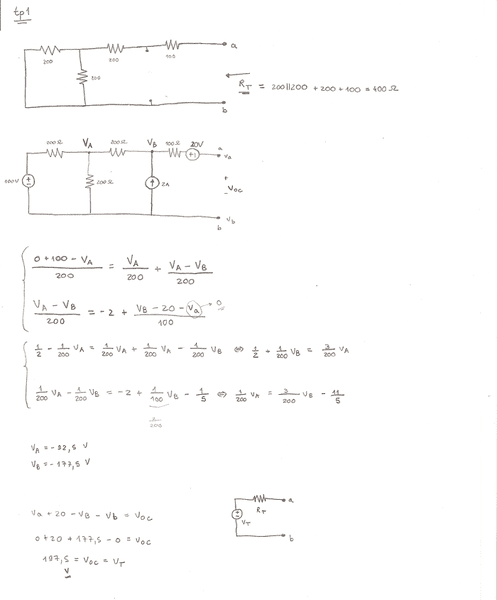 tp1
200
200
100
a
200
b
R_T = 200||200 + 200 + 100 = 400 Ω
200Ω
V_A
200Ω
V_B
100Ω
20V
a
Va
100V
200Ω
2A
+
- Voc
b
Vb
(0 + 100 - V_A)/200 = V_A/200 + (V_A - V_B)/200
(V_A - V_B)/200 = -2 + (V_B - 20 - Va)/100 → 0
1/2 - 1/200 V_A = 1/200 V_A + 1/200 V_A - 1/200 V_B ⇔ 1/2 + 1/200 V_B = 3/200 V_A
1/200 V_A - 1/200 V_B = -2 + 1/100 V_B - 1/5 ⇔ 1/200 V_A = 3/200 V_B - 11/5
2/200
V_B = -177,5 V
Va + 20 - V_B - Vb = Voc
0 + 20 + 177,5 - 0 = Voc
197,5 = Voc = V_T
V
R_T
a
V_T
b